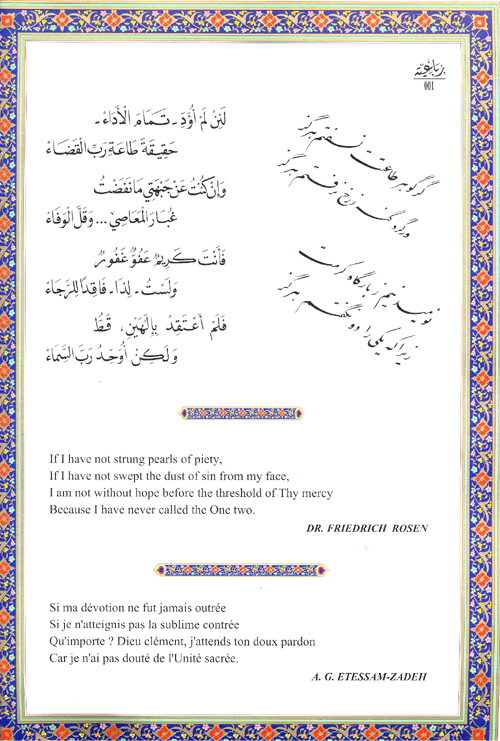 رباعية
001
لَئِنْ لَمْ أُؤَدِّ ـ تَمَامَ الْأَدَاءْ ـ
حَقِيقَةَ طَاعَةِ رَبِّ الْقَضَاءْ
وَإِنْ كُنْتُ عَنْ جَبْهَتِي مَا نَفَضْتُ
غُبَارَ الْمَعَاصِي... وَقَلَّ الْوَفَاءْ
فَأَنْتَ كَرِيمٌ عَفُوٌّ غَفُورٌ
وَلَسْتُ ـ لِذَا ـ فَاقِدًا لِلرَّجَاءْ
فَلَمْ أَعْتَقِدْ بِإِلَهَيْنِ، قَطُّ
وَلَكِنْ أُوَحِّدُ رَبَّ السَّمَاءْ
گر گوهر طاعتت نسفتم هرگز
گنه ز رخ نرفتم هرگز
نومید نیم ز بارگاه کرمت
زیرا که یکی را دو نگفتم هرگز
If I have not strung pearls of piety,
If I have not swept the dust of sin from my face,
I am not without hope before the threshold of Thy mercy
Because I have never called the One two.
DR. FRIEDRICH ROSEN
Si ma dévotion ne fut jamais outrée
Si je n'atteignis pas la sublime contrée
Qu'importe ? Dieu clément, j'attends ton doux pardon
Car je n'ai pas douté de l'Unité sacrée.
A. G. ETESSAM-ZADEH